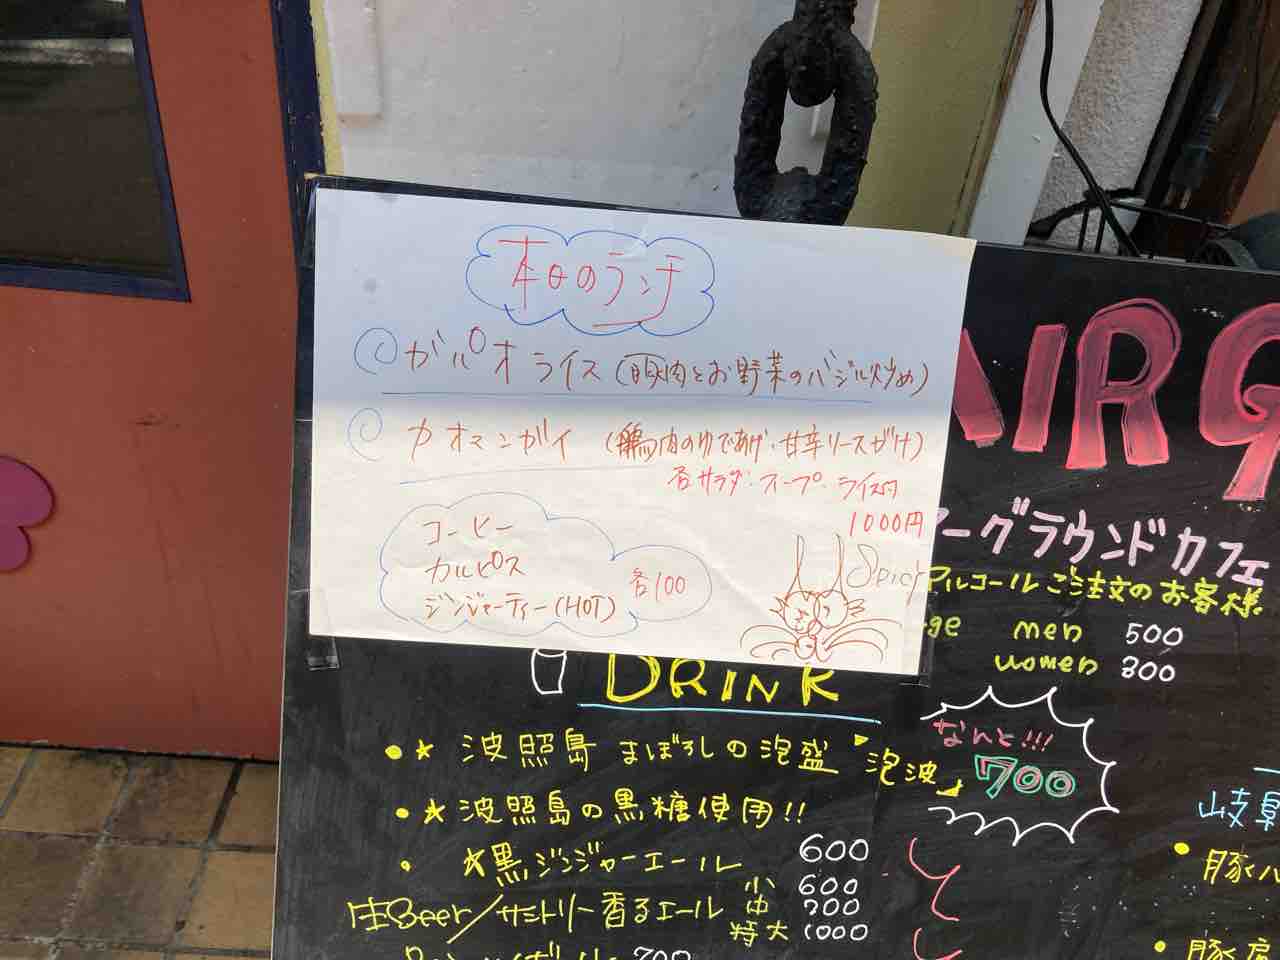 本日のランチ
ガパオライス (豚肉とお野菜のバジル炒め)
カオマンガイ (鶏肉のゆであげ・甘辛ソースがけ)
各サラダ・スープ・ライス付
1000円
コーヒー
カルピス
ジンジャーティー(HOT)
各100
Spicy
AIRG
アーグラウンドカフェ
アルコールご注文のお客様
ge men 500
women 300
DRINK
★波照島まぼろしの泡盛『泡波』
なんと!!!
700
★波照島の黒糖使用!!
★黒ジンジャーエール 600
生Beer/サントリー香るエール 小 600
中 700
特大 1000
700
岐阜
豚バ
豚肩